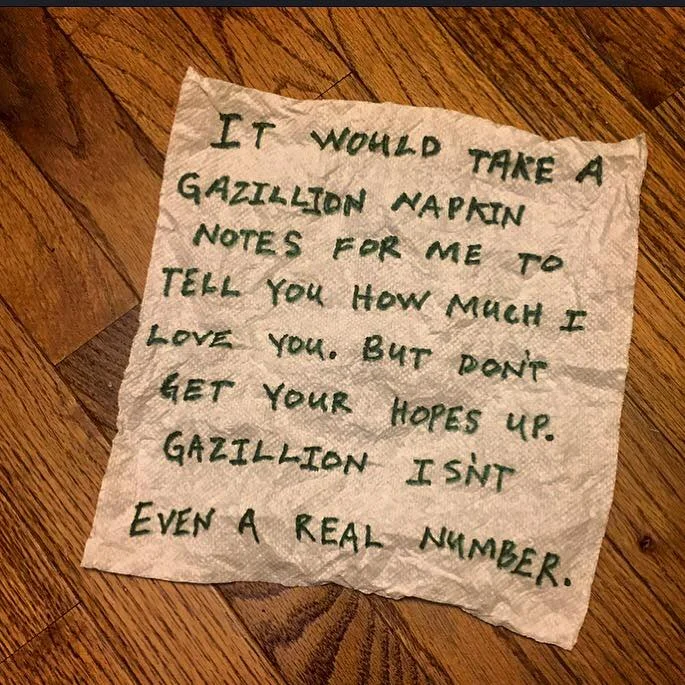 IT WOULD TAKE A
GAZILLION NAPKIN
NOTES FOR ME TO
TELL YOU HOW MUCH I
LOVE YOU. BUT DON'T
GET YOUR HOPES UP.
GAZILLION ISN'T
EVEN A REAL NUMBER.